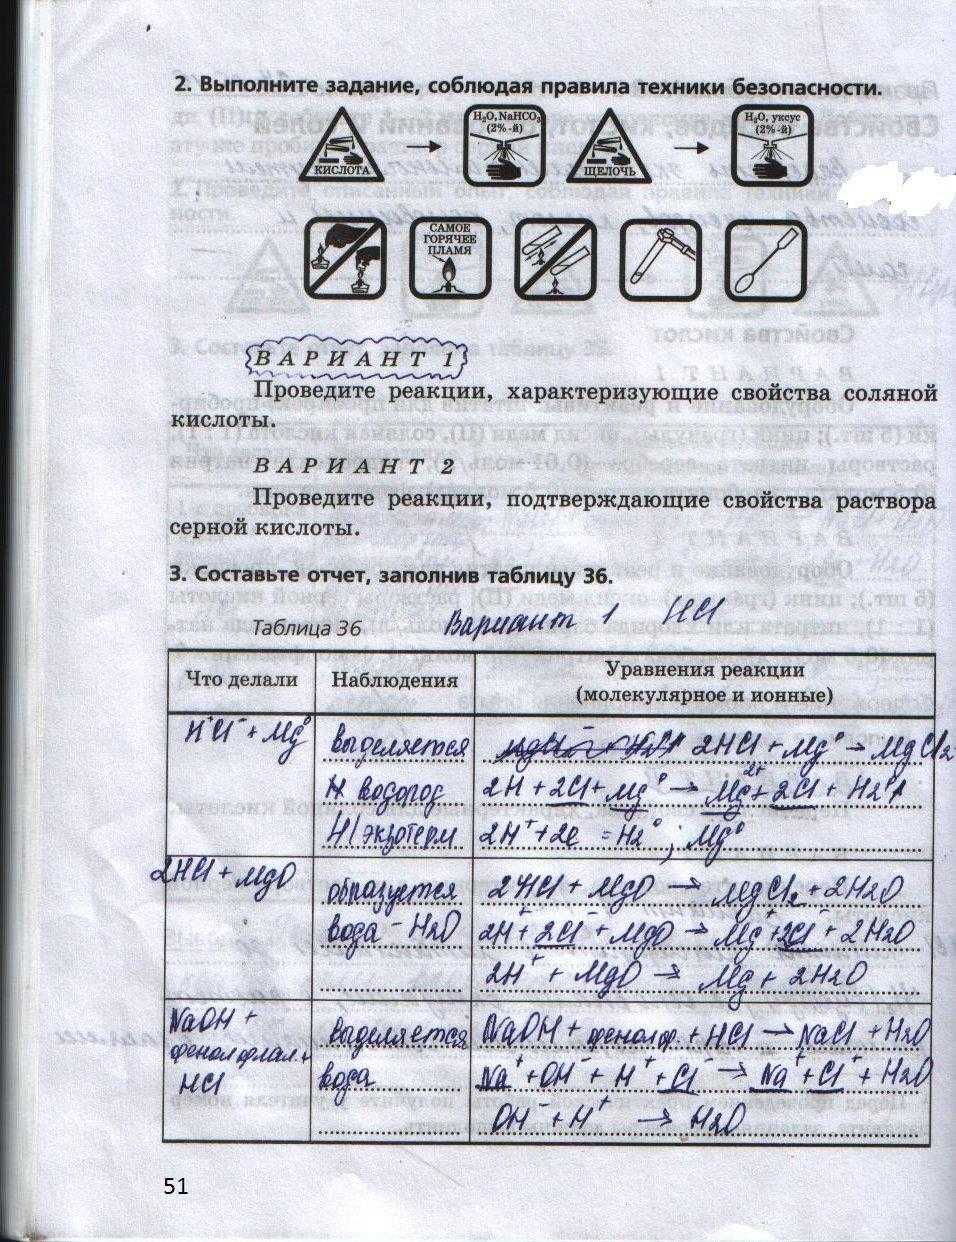 2. Выполните задание, соблюдая правила техники безопасности.
КИСЛОТА
H₂O, NaHCO₃
(2%-й)
ЩЕЛОЧЬ
H₂O, уксус
(2%-й)
САМОЕ
ГОРЯЧЕЕ
ПЛАМЯ
ВАРИАНТ 1
Проведите реакции, характеризующие свойства соляной
кислоты.
ВАРИАНТ 2
Проведите реакции, подтверждающие свойства раствора
серной кислоты.
3. Составьте отчет, заполнив таблицу 36.
Таблица 36 Вариант 1 HCl
Что делали Наблюдения Уравнения реакции
(молекулярное и ионные)
H⁺Cl⁻ + Mg⁰ выделяется 2HCl + Mg⁰ → MgCl₂
водород 2H + 2Cl + Mg⁰ → Mg²⁺ + 2Cl + H₂⁰↑
экзотерм 2H⁺ + 2e = H₂⁰ ; Mg⁰
2HCl + MgO образуется 2HCl + MgO → MgCl₂ + 2H₂O
вода - H₂O 2H⁺ + 2Cl⁻ + MgO → Mg⁺ + 2Cl⁻ + 2H₂O
2H⁺ + MgO → Mg + 2H₂O
NaOH + выделяется NaOH + фенолф. + HCl → NaCl + H₂O
фенолфтал. + вода Na⁺ + OH⁻ + H⁺ + Cl⁻ → Na⁺ + Cl⁻ + H₂O
HCl OH⁻ + H⁺ → H₂O
51